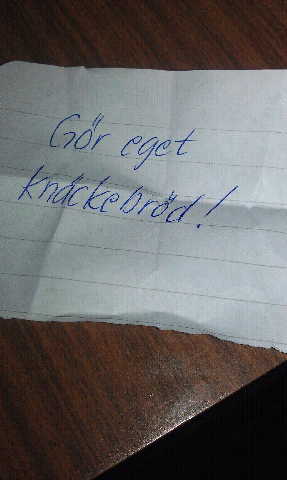 Gör eget
knäckebröd!